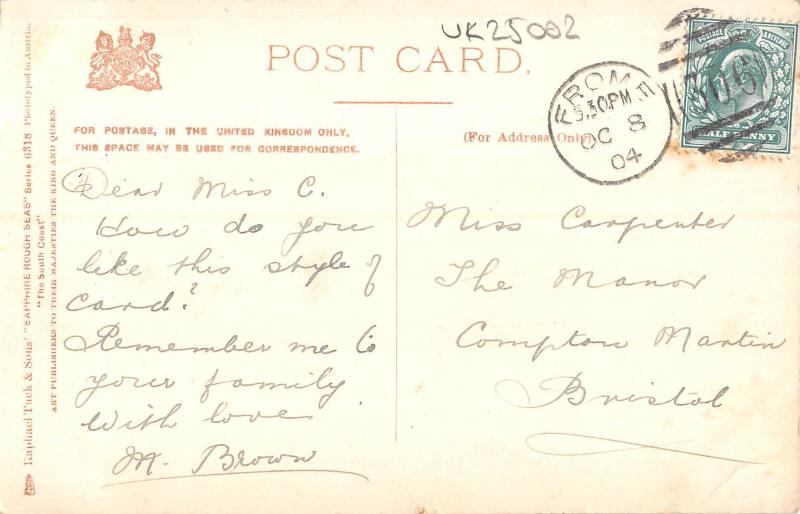 UK25002
POST CARD.
FOR POSTAGE, IN THE UNITED KINGDOM ONLY,
THIS SPACE MAY BE USED FOR CORRESPONDENCE.
(For Address Only)
FROME
5.30PM
OC 8
04
POSTAGE & REVENUE
HALF PENNY
Dear Miss C.
How do you
like this style of
card?
Remember me to
your family
With love
M. Brown
Miss Carpenter
The Manor
Compton Martin
Bristol
Raphael Tuck & Sons' "SAPPHIRE ROUGH SEAS" Series 6318 Phototyped in Austria.
"The South Coast"
ART PUBLISHERS TO THEIR MAJESTIES THE KING AND QUEEN.